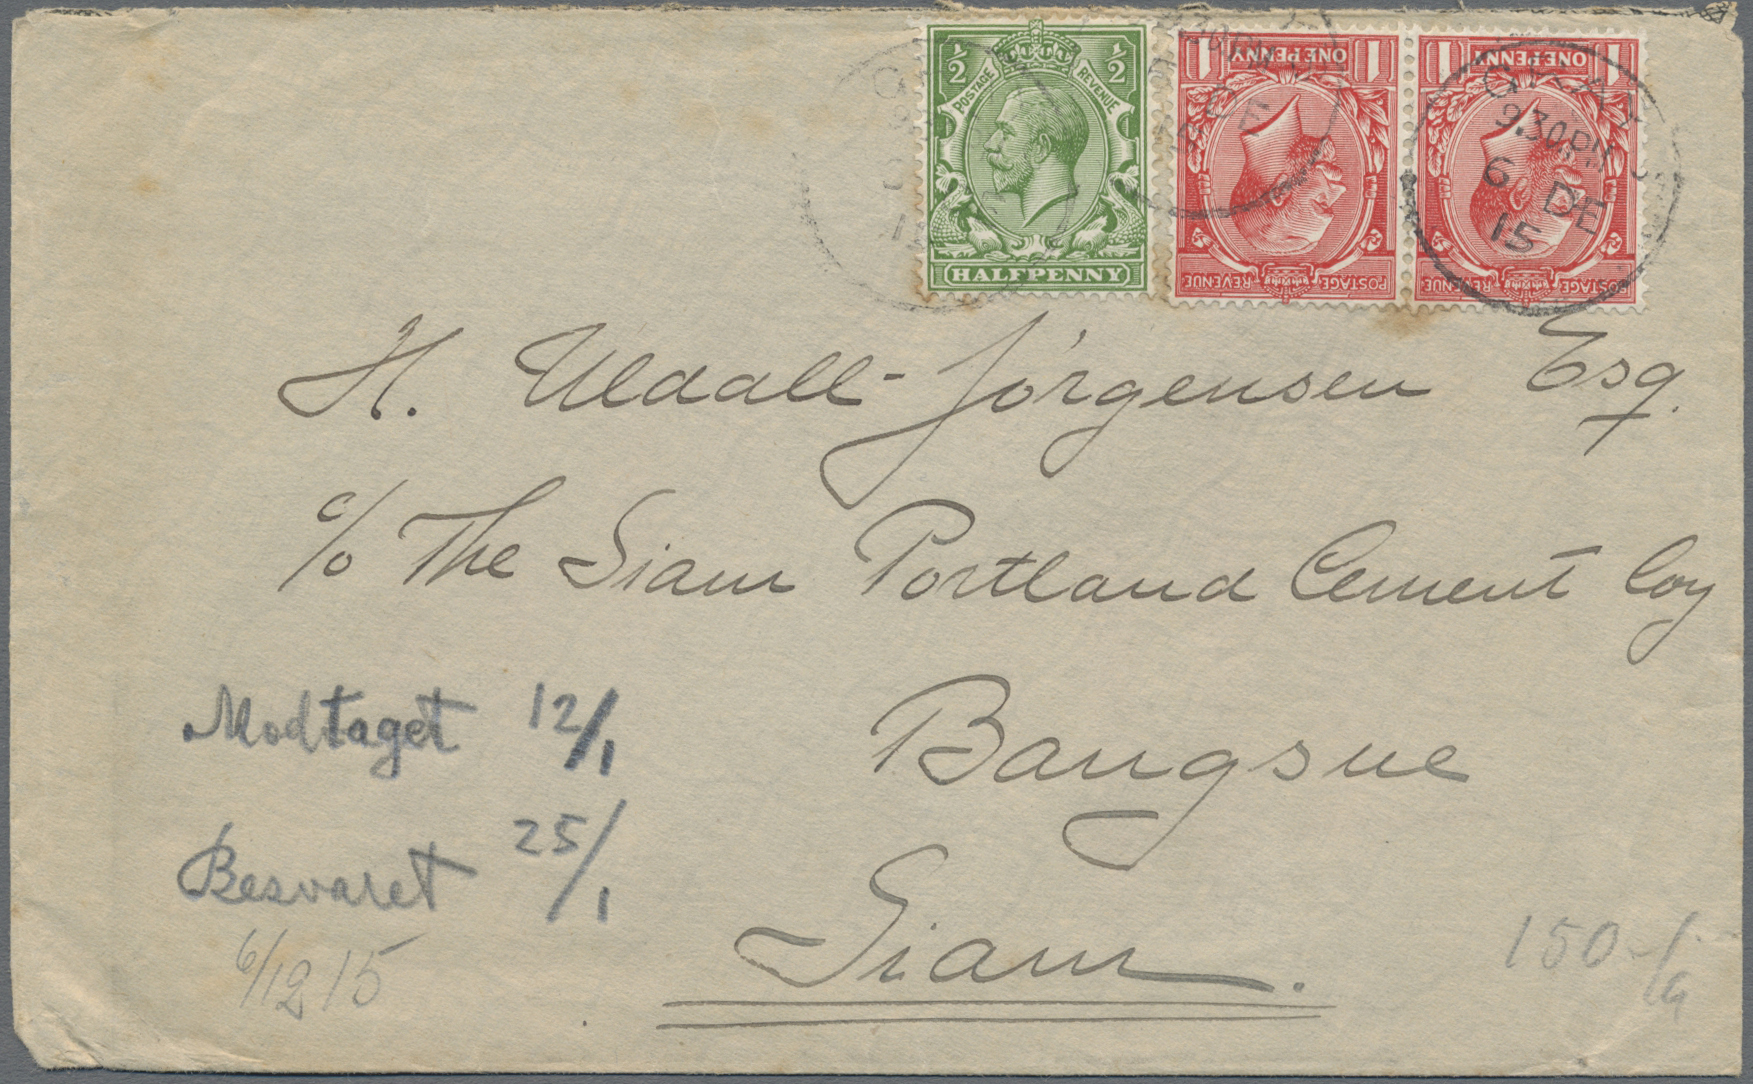 ½ ½
POSTAGE REVENUE
HALFPENNY
1 ONE PENNY 1
POSTAGE REVENUE
1 ONE PENNY 1
POSTAGE REVENUE
9.30PM
6 DE
15
H. Uldall-Jörgensen Esq.
c/o The Siam Portland Cement Coy
Bangsue
Siam.
Modtaget 12/1
Besvaret 25/1
6/12 15
150-/